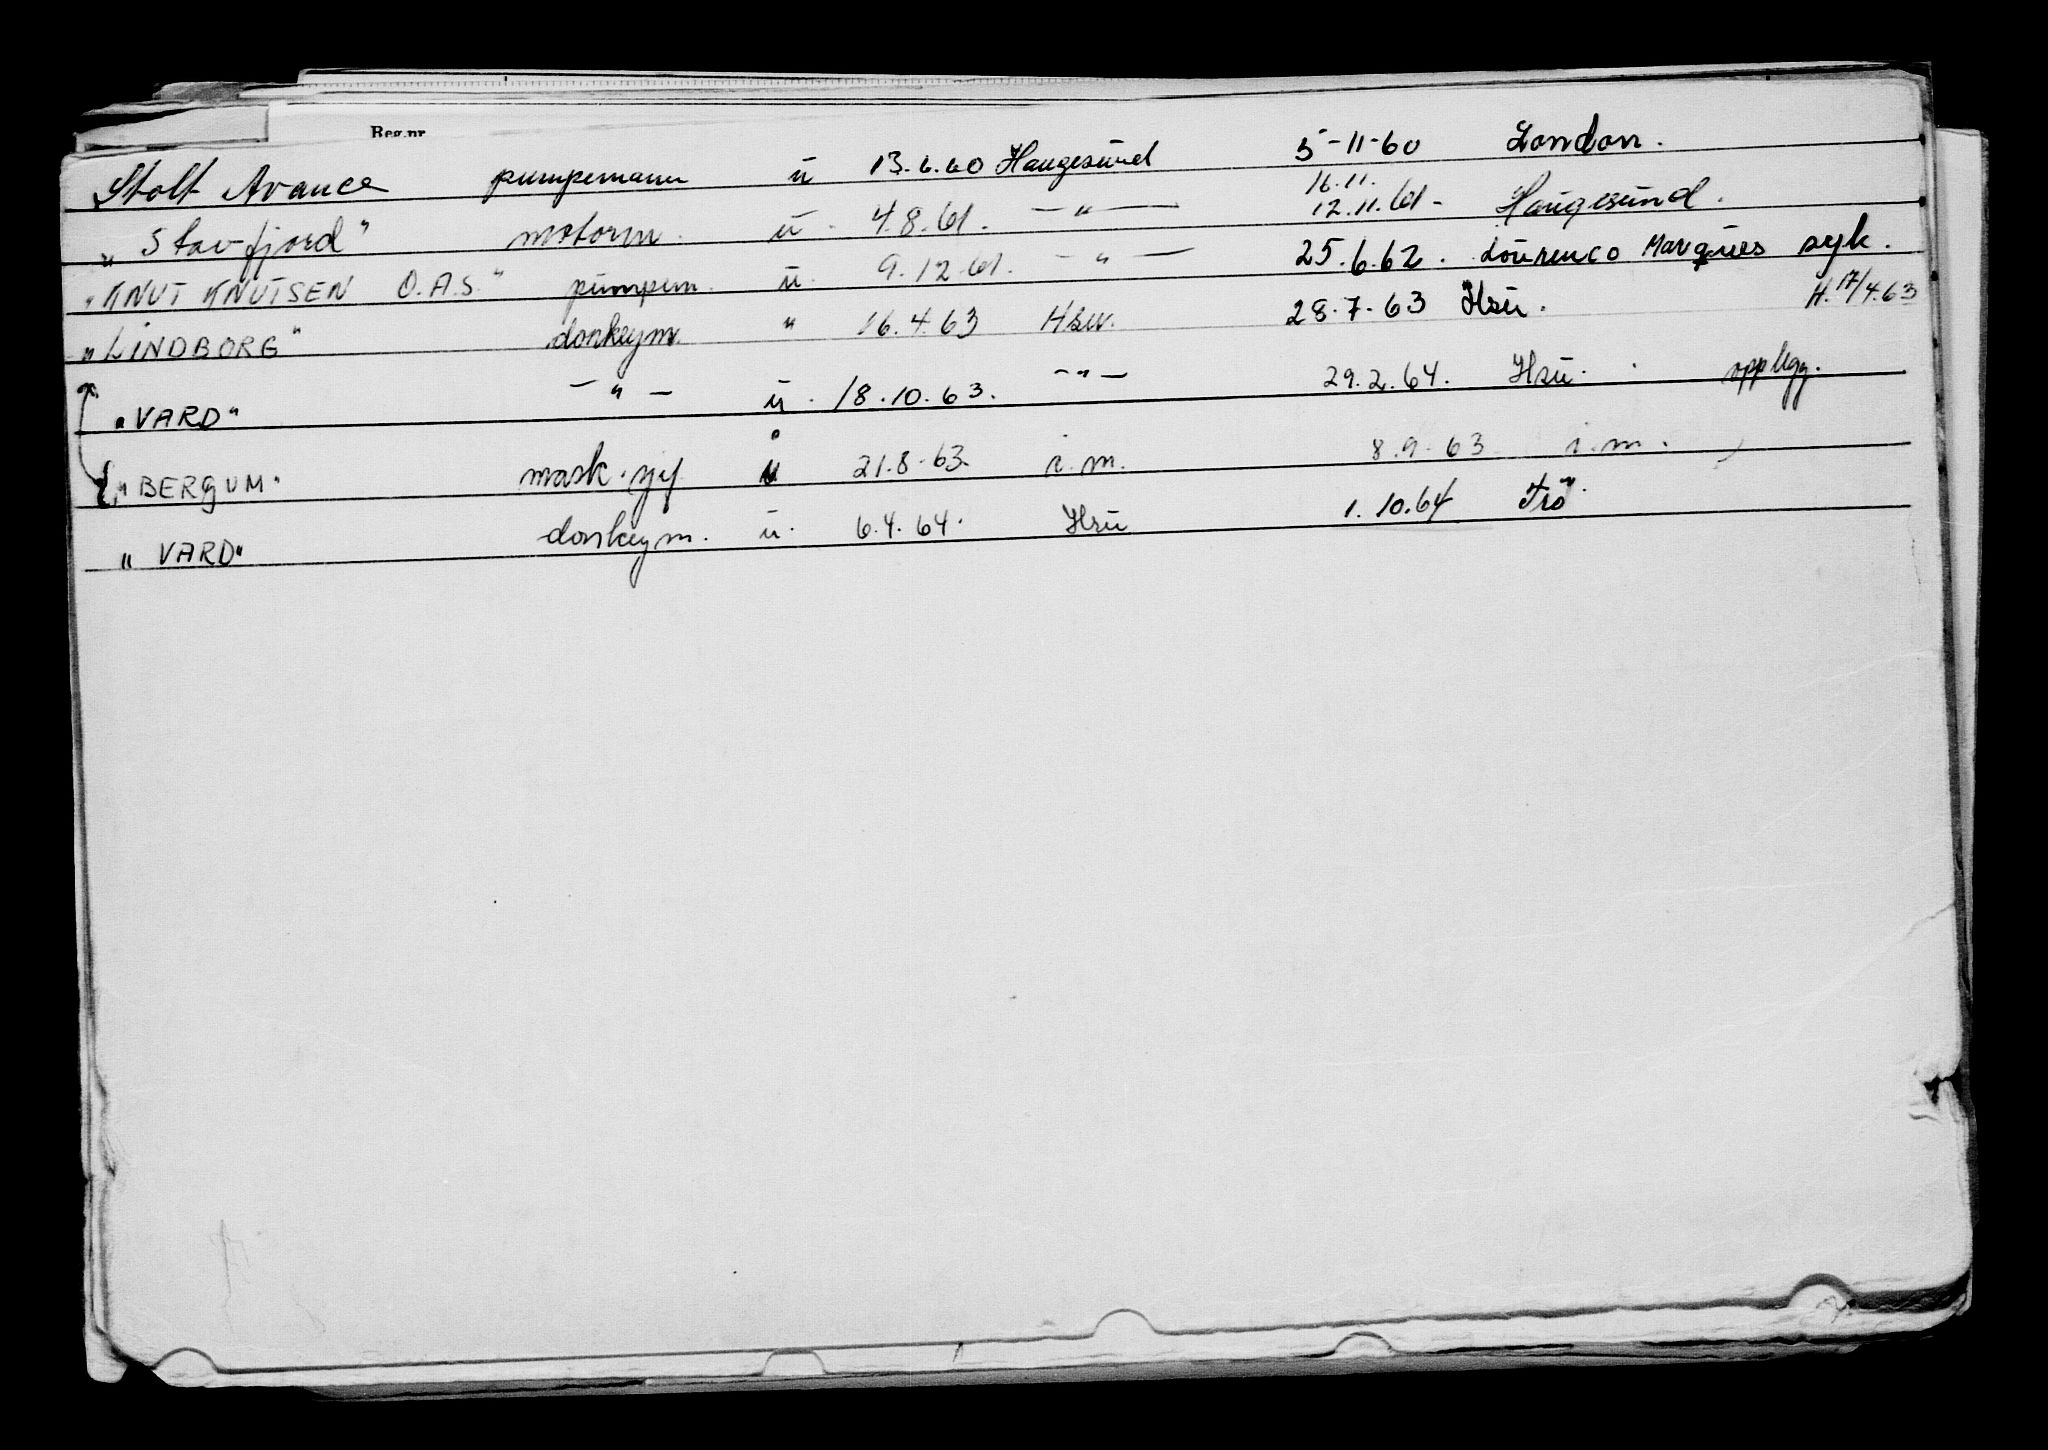 Reg.nr.
Stolt Avance pumpemann u 13.6.60 Haugesund 5-11-60 London.
16.11.
"Stavfjord" motorm. u. 4.8.61. —"— 12.11.61- Haugesund.
"KNUT KNUTSEN O.A.S." pumpem. u. 9.12.61. —"— 25.6.62. Lourenco Marques syk.
"LINDBORG" donkeym. " 16.4.63 Hsu. 28.7.63 Hsu. H.17/4.63
"VARD" —"— u. 18.10.63. —"— 29.2.64. Hsu. opplegg.
"BERGUM" mask.sjf u 21.8.63. i.m. 8.9.63 i.m.
"VARD" donkeym. u. 6.4.64. Hsu 1.10.64 Trö.